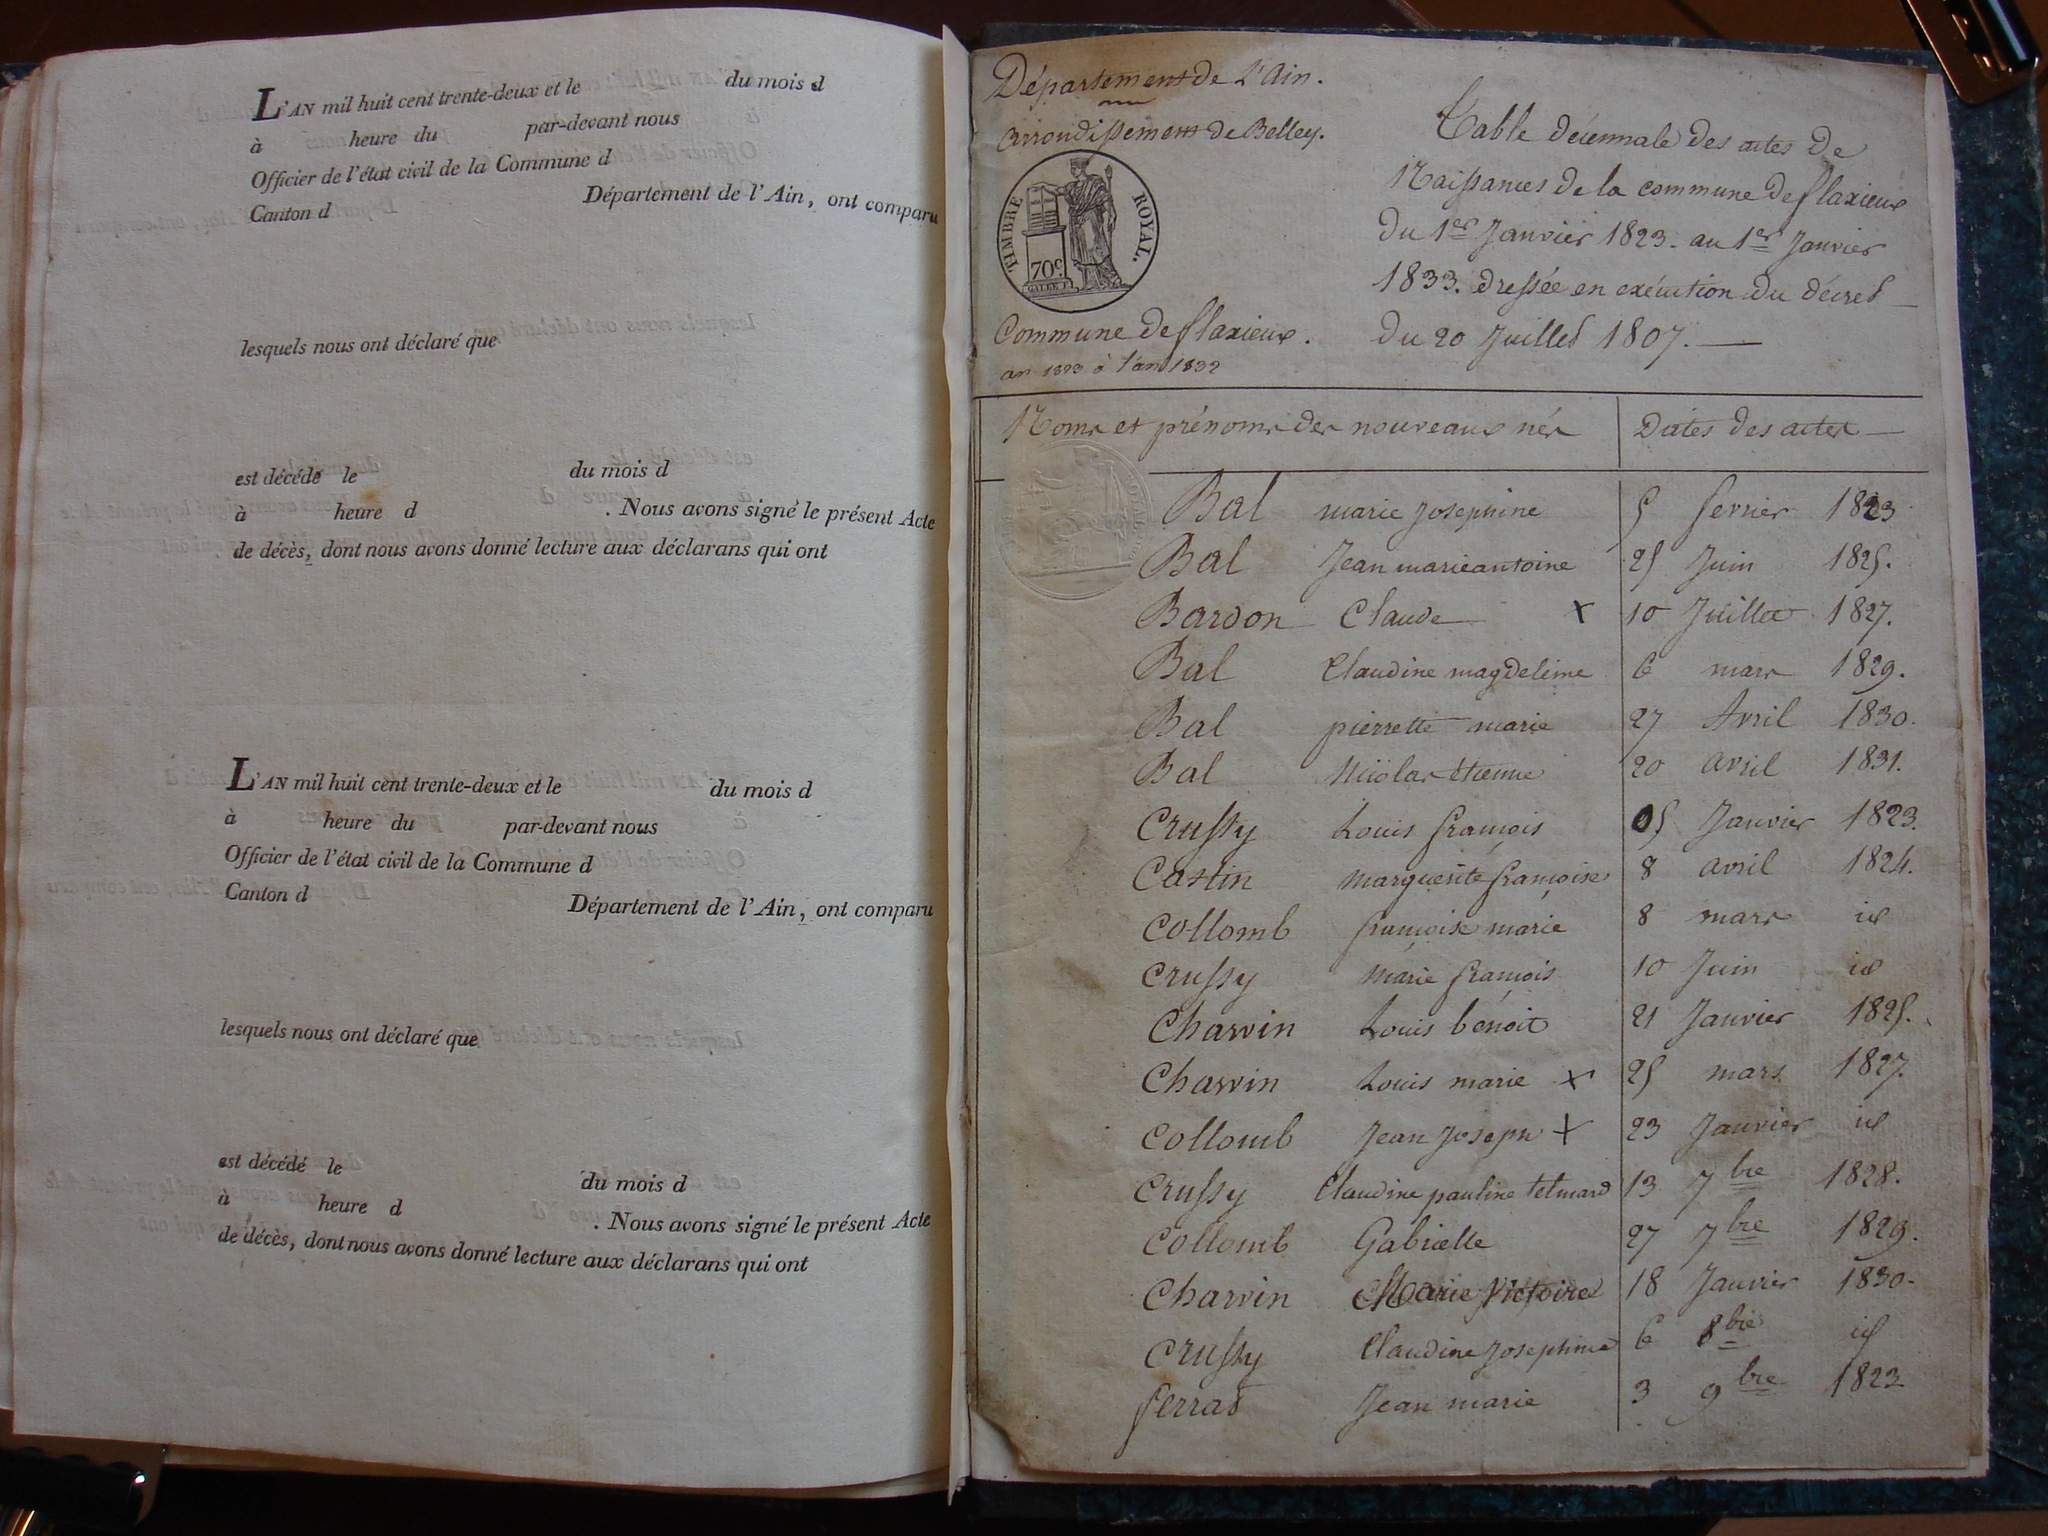 L'AN mil huit cent trente-deux et le du mois d
à heure du par-devant nous
Officier de l'état civil de la Commune d
Canton d Département de l'Ain, ont comparu
lesquels nous ont déclaré que
est décédé le du mois d
à heure d . Nous avons signé le présent Acte
de décès, dont nous avons donné lecture aux déclarans qui ont
L'AN mil huit cent trente-deux et le du mois d
à heure du par-devant nous
Officier de l'état civil de la Commune d
Canton d Département de l'Ain, ont comparu
lesquels nous ont déclaré que
est décédé le du mois d
à heure d . Nous avons signé le présent Acte
de décès, dont nous avons donné lecture aux déclarans qui ont
Département de L'Ain.
arrondissement de Belley.
TIMBRE ROYAL.
70c.
Commune de flaxieux.
an 1823 à l'an 1832
Table décennale des actes de
Naissances de la commune de flaxieux
du 1er Janvier 1823. au 1er Janvier
1833. dressée en exécution du décret
du 20 Juillet 1807.
Noms et prénoms des nouveaux nés Dates des actes
Bal marie Josephine 5 fevrier 1823
Bal Jean marie antoine 25 Juin 1825.
Bardon Claude x 10 Juillet 1827.
Bal Claudine magdeleine 6 mars 1829.
Bal pierrette marie 27 Avril 1830.
Bal Nicolas étienne 20 avril 1831.
Crussy Louis françois 05 Janvier 1823.
Castin marguerite françoise 8 avril 1824.
Collomb françoise marie 8 mars id
Crussy marie françois 10 Juin id
Charvin Louis bénoit 21 Janvier 1825.
Charvin Louis marie x 25 mars 1827.
Collomb Jean Joseph x 23 Janvier id
Crussy Claudine pauline 13 7bre 1828.
Collomb Gabrielle 27 7bre 1829.
Charvin Marie Victoire 18 Janvier 1830.
Crussy Claudine Josephine 6 8bre id
ferrad Jean marie 3 9bre 1823